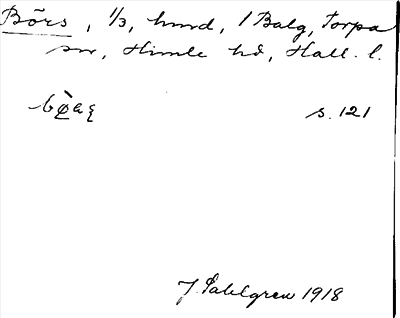 Börs, 1/3, hmd, 1 Balg, Torpa
sn, Himle hd, Hall. l.
s. 121
J. Sahlgren 1918